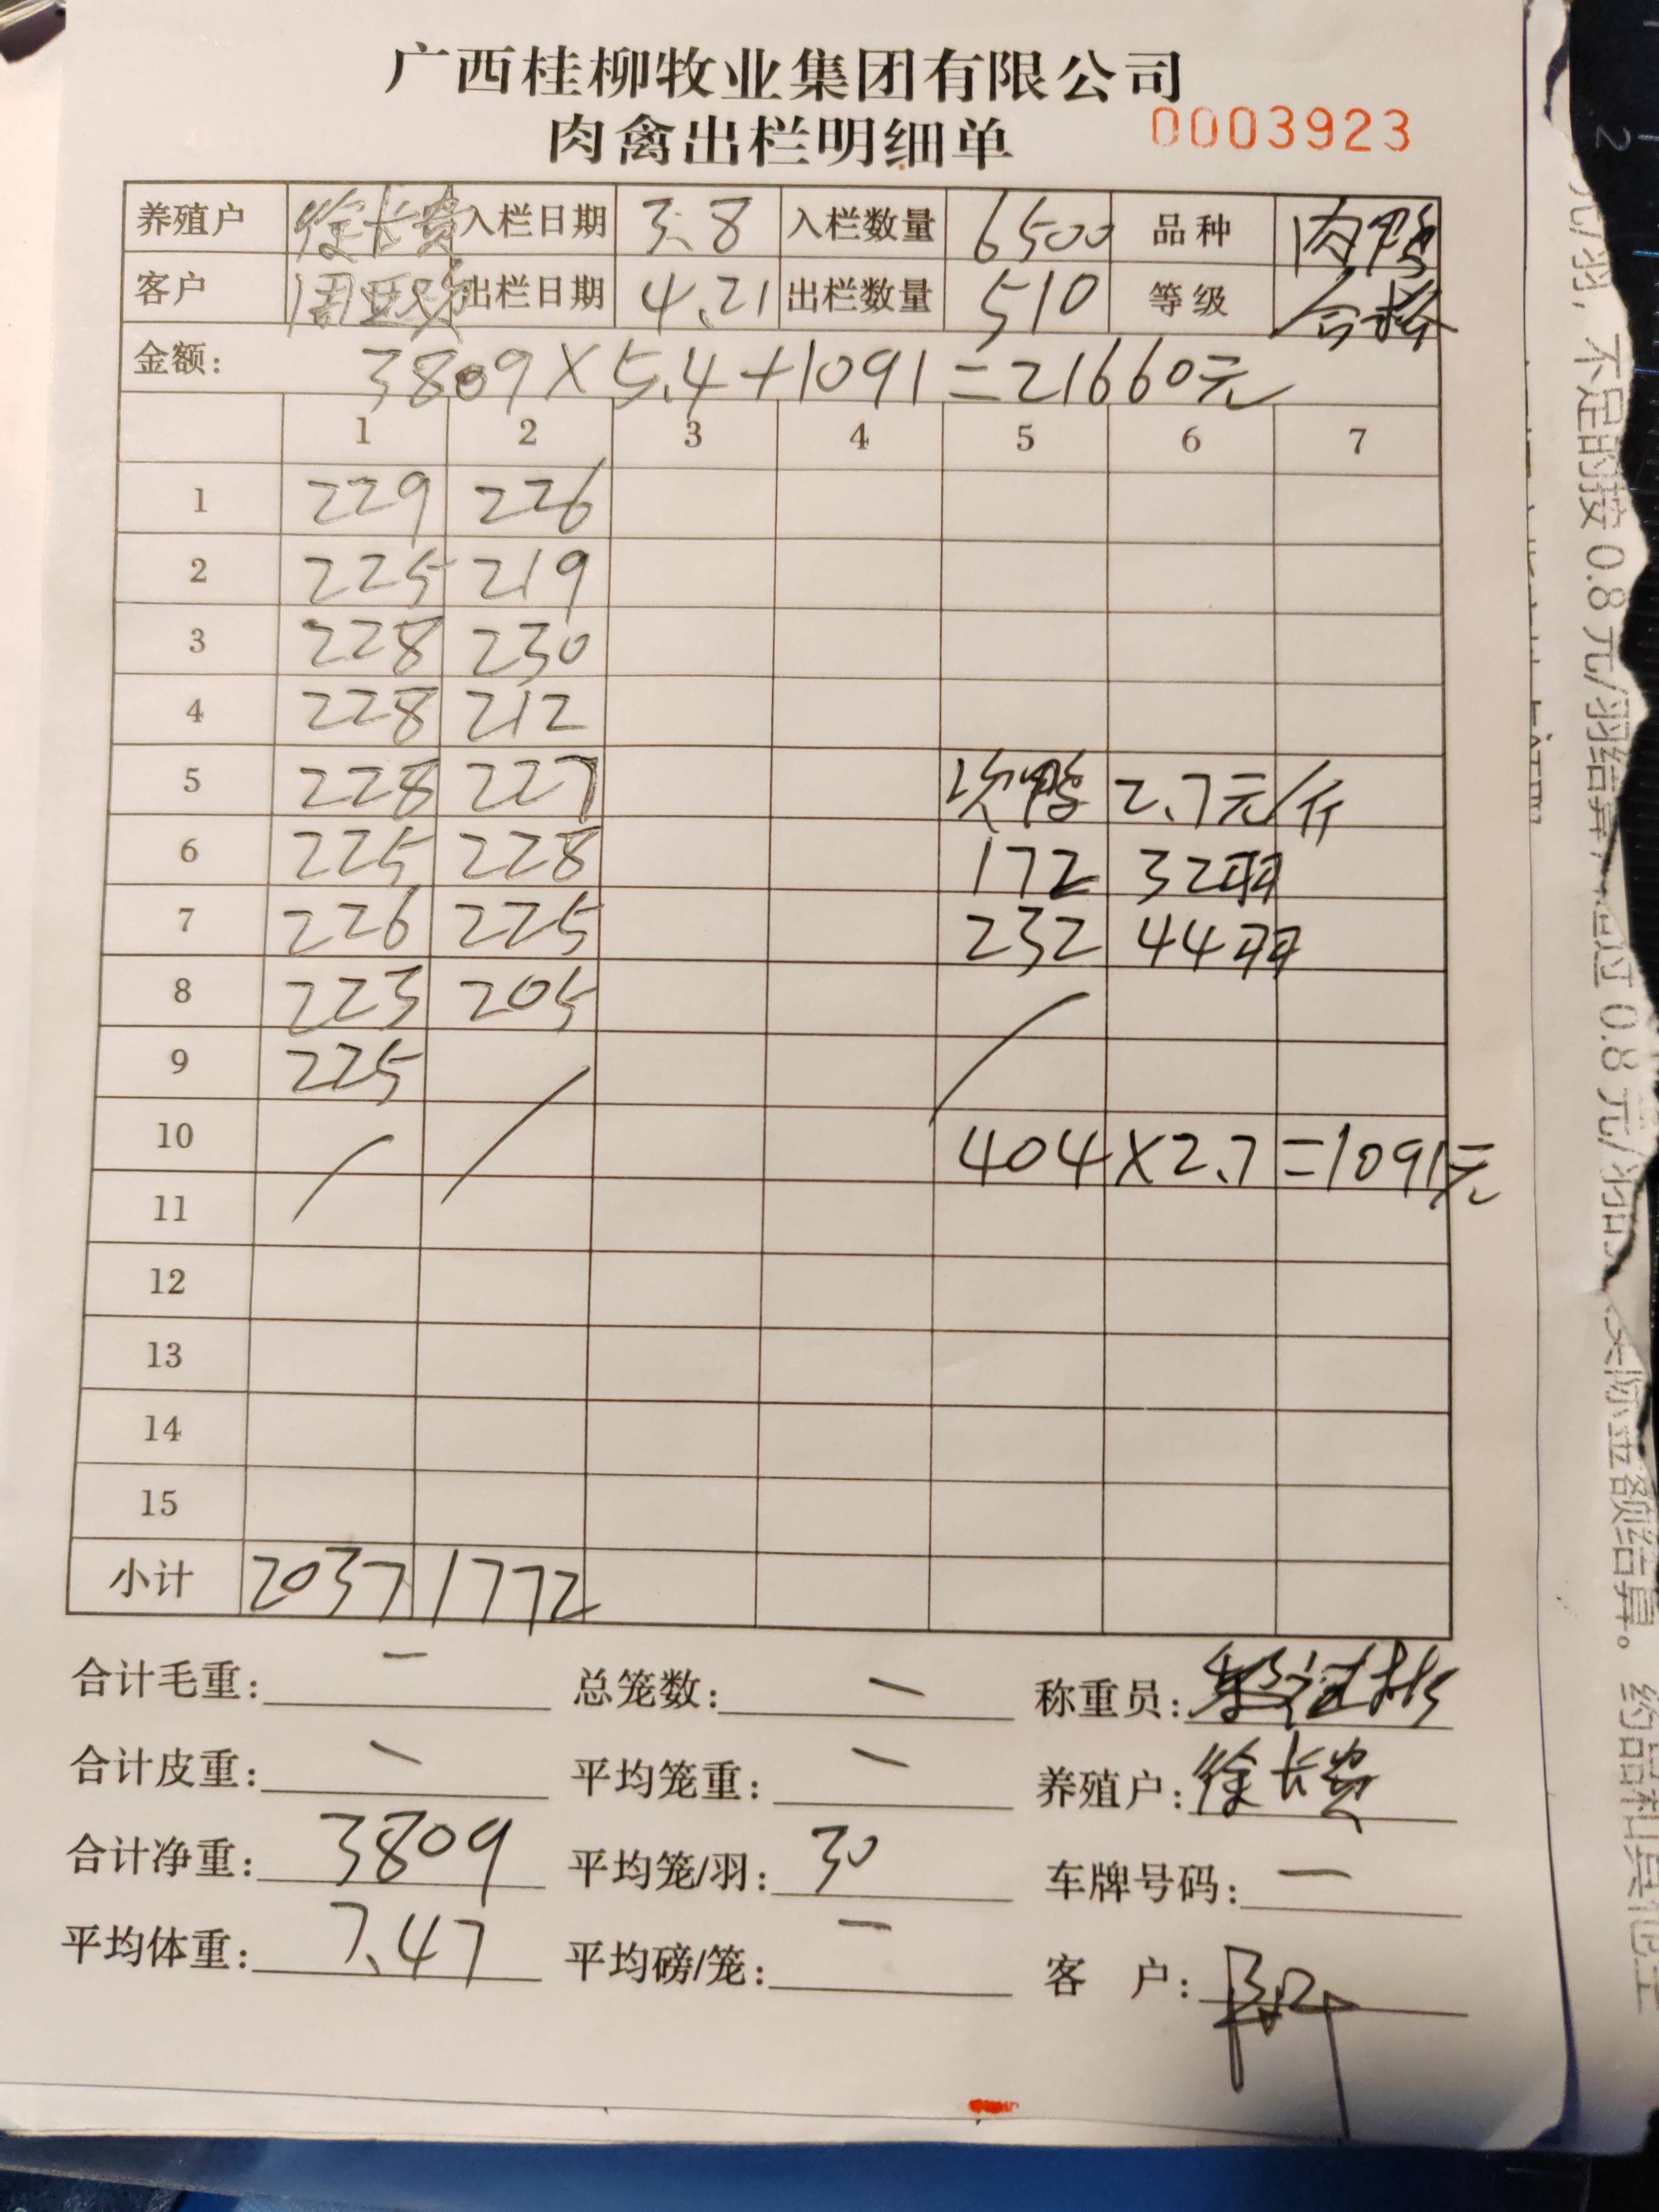 广西桂柳牧业集团有限公司
肉禽出栏明细单 0003923
养殖户 徐长贵 入栏日期 3.8 入栏数量 6500 品种 肉鸭
客户 出栏日期 4.21 出栏数量 510 等级 合格
金额: 3809×5.4+1091=21660元
1 2 3 4 5 6 7
1 229 226
2 225 219
3 228 230
4 228 212
5 228 227 次鸭 2.7元/斤
6 225 228 172 32羽
7 226 225 232 44羽
8 223 205
9 225
10 404×2.7=1091元
11
12
13
14
15
小计 2037 1772
合计毛重: 一 总笼数: 一 称重员:
合计皮重: 一 平均笼重: 一 养殖户: 徐长贵
合计净重: 3809 平均笼/羽: 30 车牌号码: 一
平均体重: 7.47 平均磅/笼: 一 客 户:
2
元/羽, 不足的按 0.8 元/羽结算, 超过 0.8 元/羽的 实际金额结算。